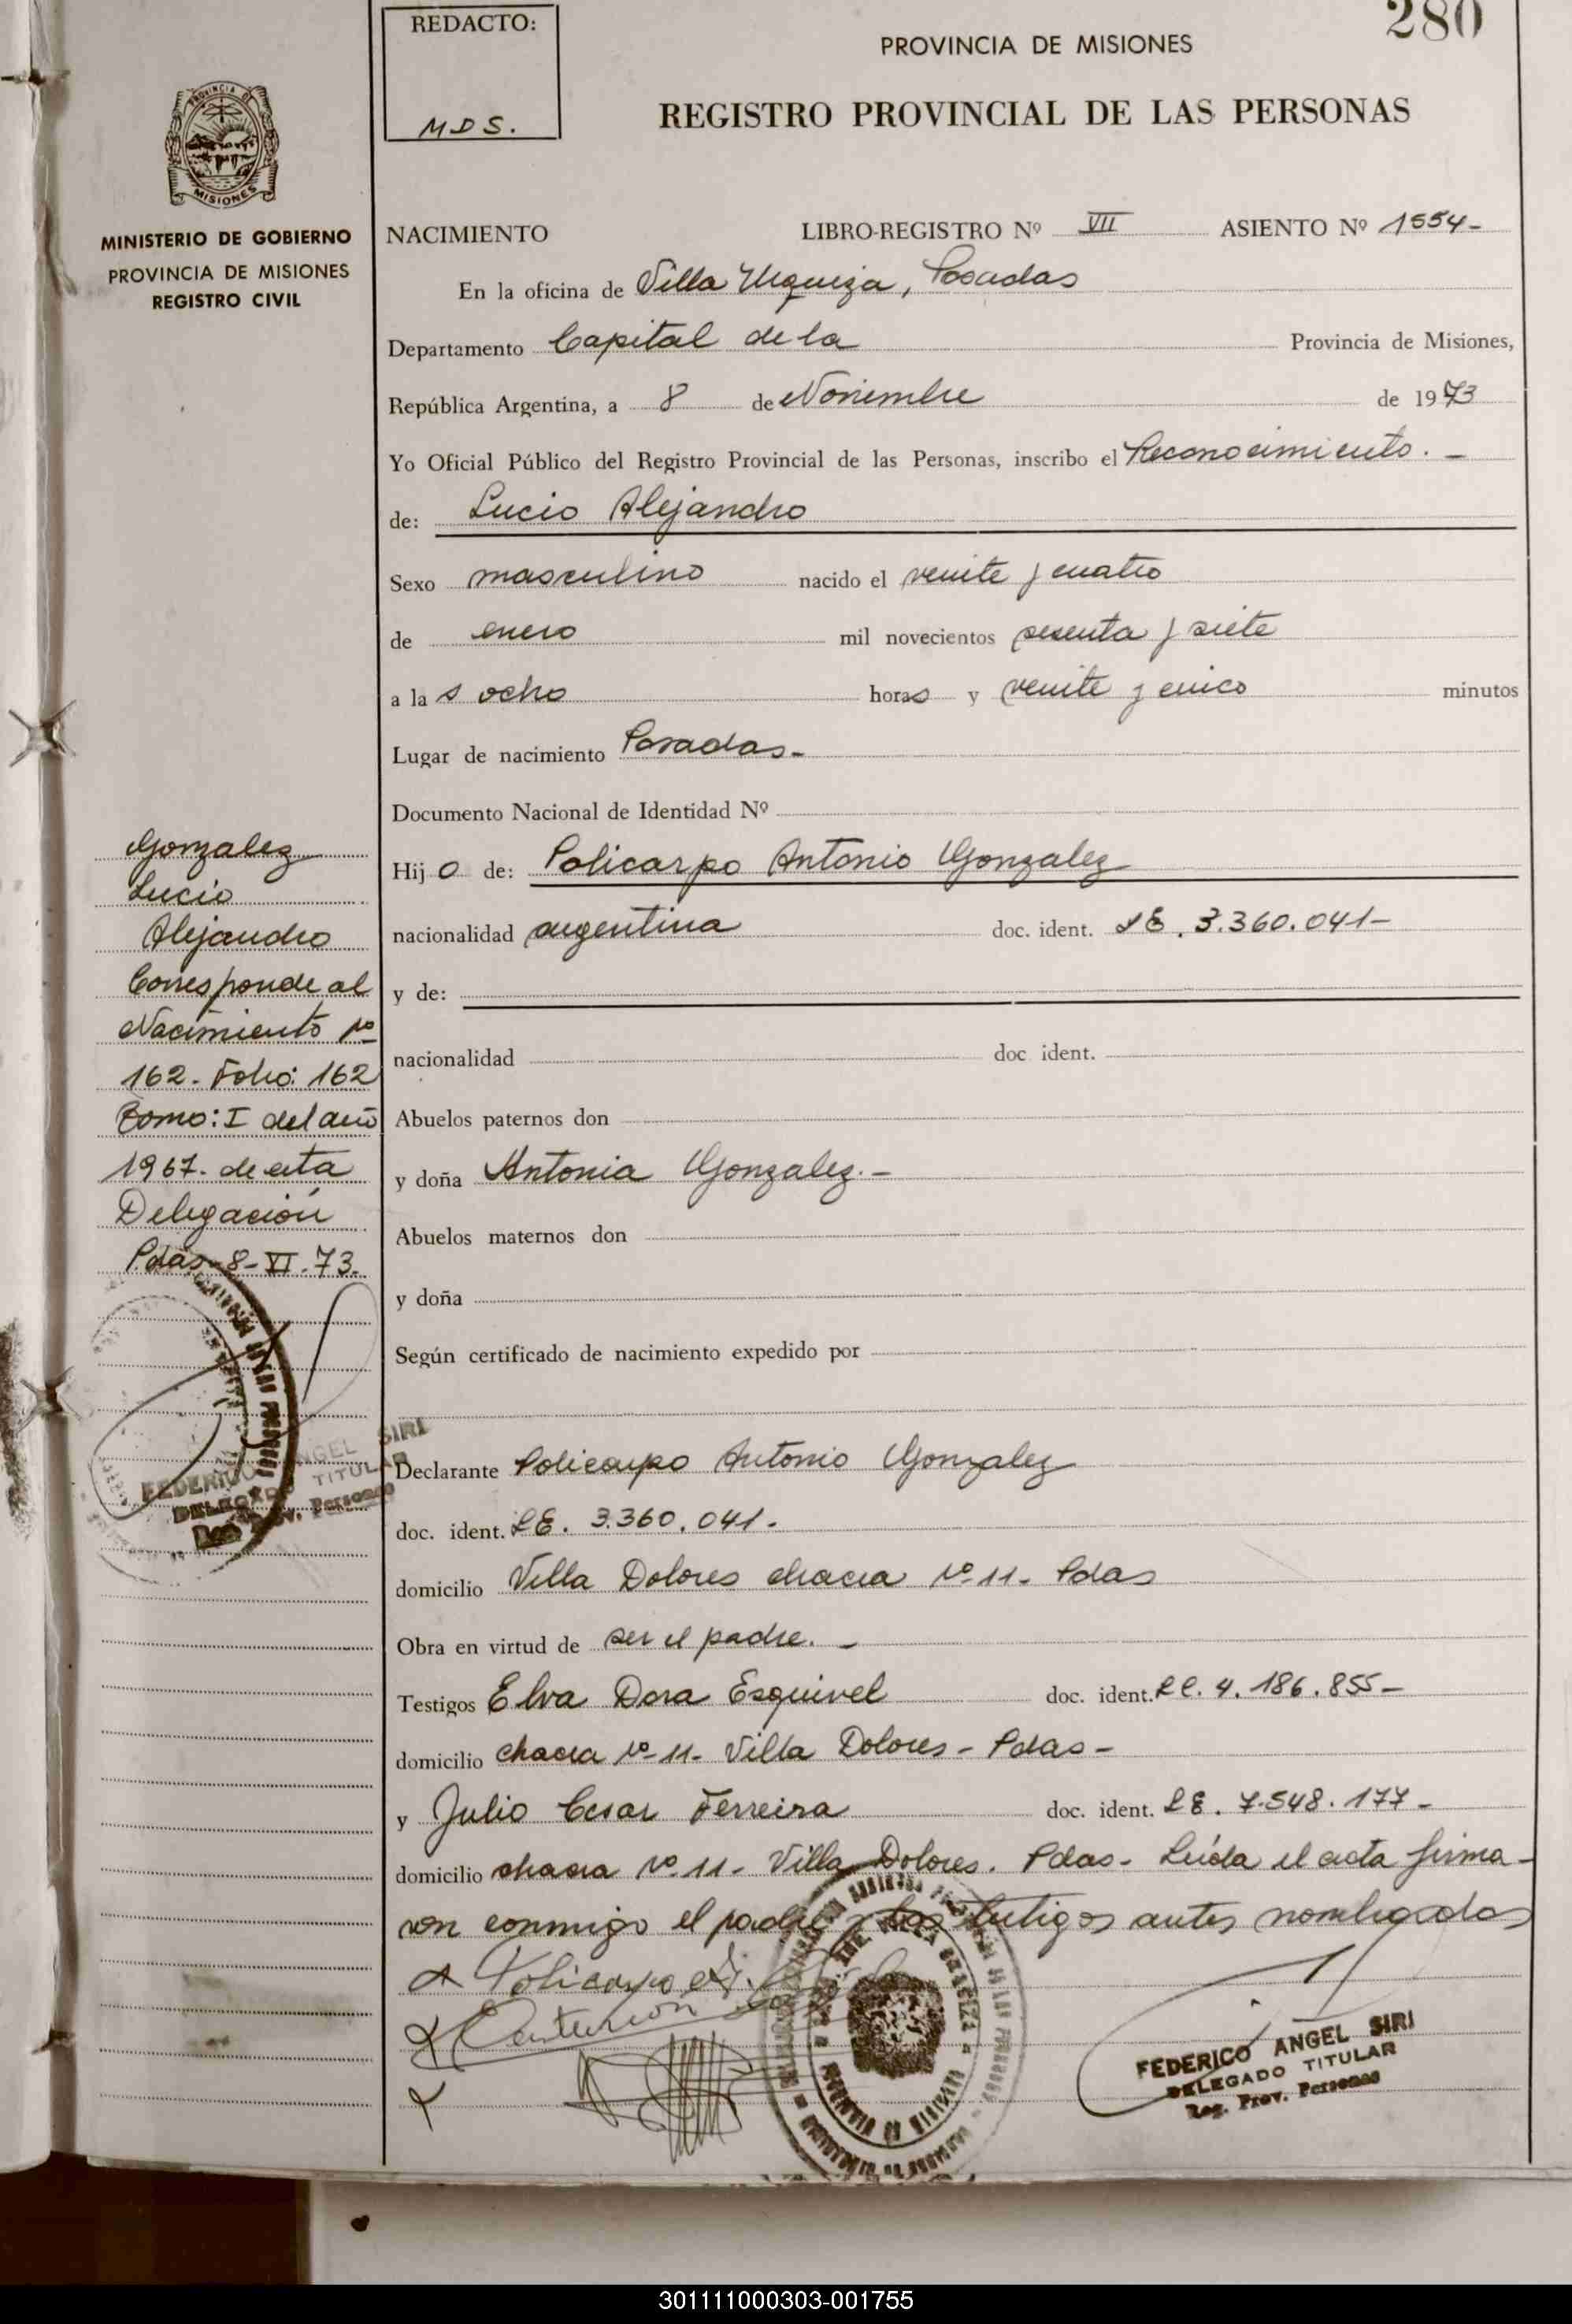 REDACTO:
M.D.S.
280
PROVINCIA DE MISIONES
REGISTRO PROVINCIAL DE LAS PERSONAS
PROVINCIA DE
MISIONES
MINISTERIO DE GOBIERNO
PROVINCIA DE MISIONES
REGISTRO CIVIL
NACIMIENTO LIBRO-REGISTRO Nº VII ASIENTO Nº 1554-
En la oficina de Villa Urquiza, Posadas
Departamento Capital de la Provincia de Misiones,
República Argentina, a 8 de Noviembre de 1973
Yo Oficial Público del Registro Provincial de las Personas, inscribo el Reconocimiento. -
de: Lucio Alejandro
Sexo masculino nacido el veinte y cuatro
de enero mil novecientos sesenta y siete
a las ocho horas y veinte y cinco minutos
Lugar de nacimiento Posadas-
Documento Nacional de Identidad Nº
Hijo de: Policarpo Antonio Gonzalez
nacionalidad argentina doc. ident. LE. 3.360.041-
y de:
nacionalidad doc ident.
Abuelos paternos don
y doña Antonia Gonzalez.-
Abuelos maternos don
y doña
Según certificado de nacimiento expedido por
Declarante Policarpo Antonio Gonzalez
doc. ident. LE. 3.360.041.
domicilio Villa Dolores chacra Nº 11- Pdas
Obra en virtud de ser el padre. -
Testigos Elva Dora Esquivel doc. ident. LC. 4.186.855-
domicilio chacra Nº 11- Villa Dolores - Pdas-
y Julio Cesar Ferreira doc. ident. LE. 7.548.177-
domicilio chacra Nº 11- Villa Dolores. Pdas- Leída el acta firma-
ron conmigo el padre y los testigos antes nombrados
Policarpo A.
FEDERICO ANGEL SIRI
DELEGADO TITULAR
Reg. Prov. Personas
Gonzalez
Lucio
Alejandro
Corresponde al
Nacimiento Nº
162. Folio: 162
Tomo: I del año
1967. de esta
Delegación
Pdas-8-XI-73.
FEDERICO ANGEL SIRI
DELEGADO TITULAR
Reg. Prov. Personas
301111000303-001755